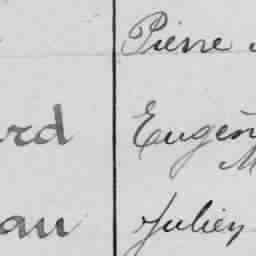 Pierre
rd Eugèn
M
au Julien